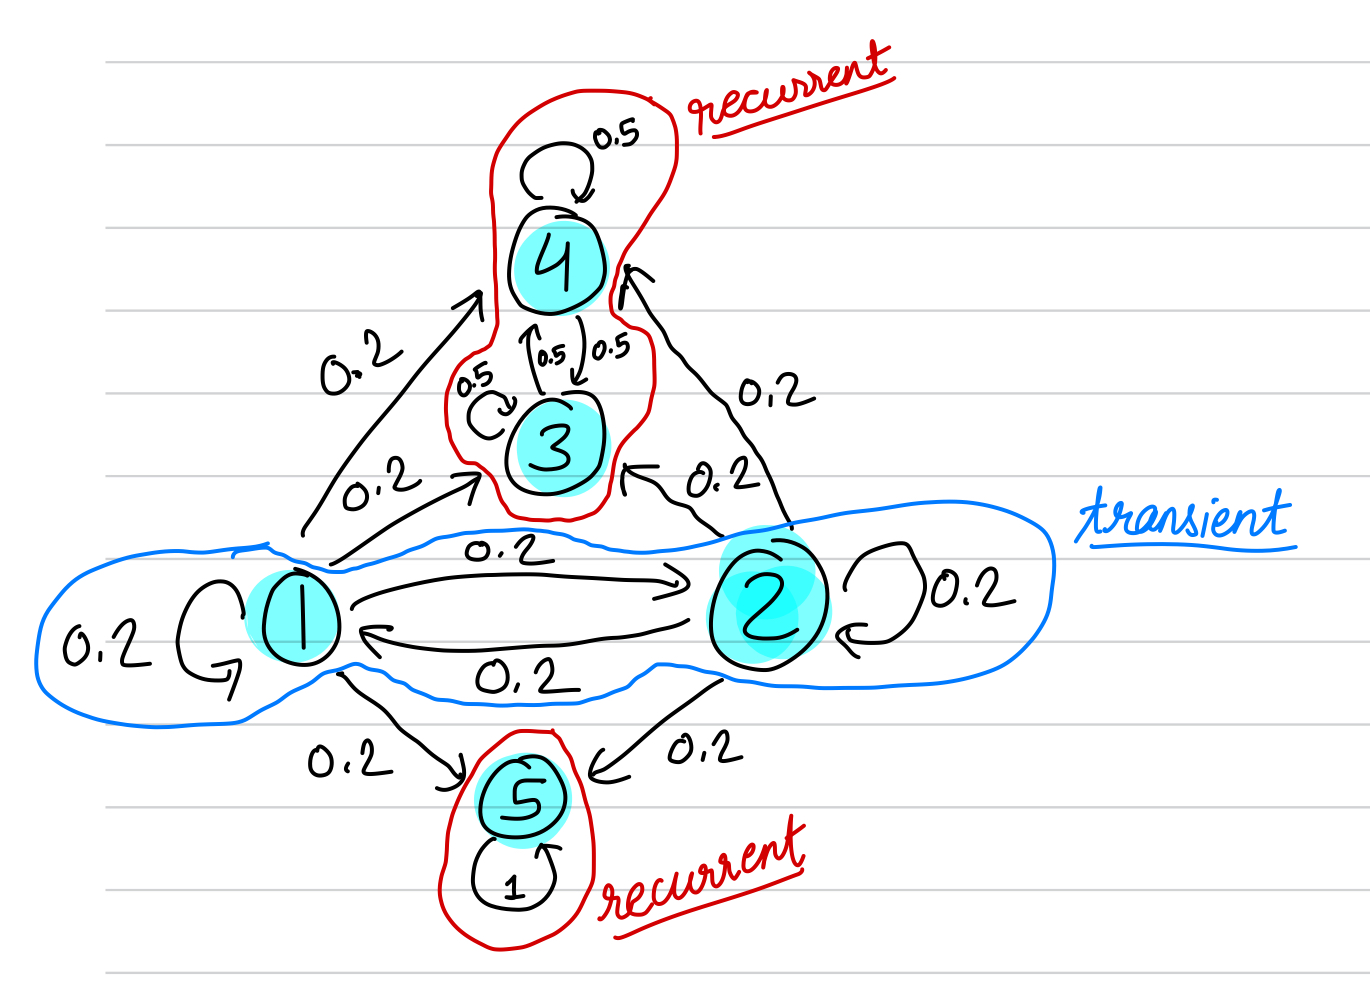 recurrent
0.5
4
0.2
0.5
0.5
0.5
0.2
3
0.2
0.2
transient
0.2
0.2
1
2
0.2
0.2
0.2
0.2
5
1
recurrent